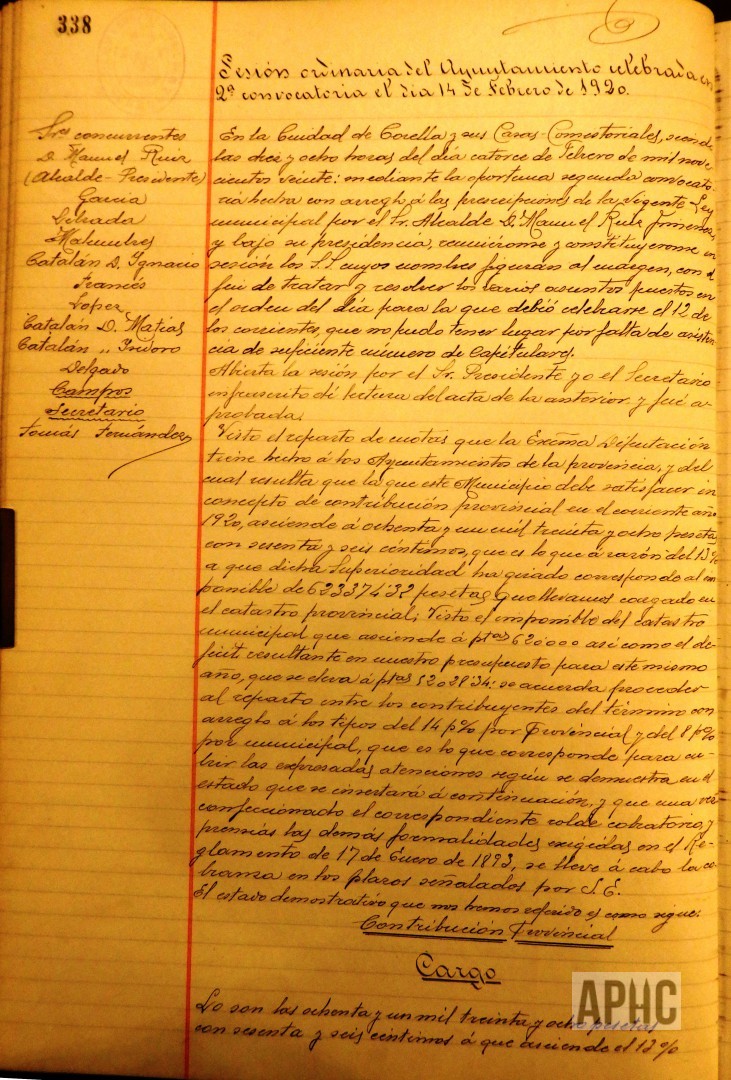 338
Sesión ordinaria del Ayuntamiento celebrada en
2ª convocatoria el dia 14 de Febrero de 1920.
Sres concurrentes
D. Manuel Ruiz
(Alcalde-Presidente)
Garcia
Librada
Malumbres
Catalán D. Ignacio
Francés
Lopez
Catalán D. Matias
Catalán „ Isidoro
Delgado
Campos
Secretario
Tomás Fernández
En la Ciudad de Corella y sus Casas-Consistoriales, siendo
las diez y ocho horas del día catorce de Febrero de mil nove-
cientos veinte: mediante la oportuna segunda convocato-
ria hecha con arreglo á las prescripciones de la vigente Ley
municipal por el Sr. Alcalde D. Manuel Ruiz Jimenez,
y bajo su presidencia, reuniéronse y constituyeronse en
sesión los S.S. cuyos nombres figuran al margen, con el
fin de tratar y resolver los varios asuntos puestos en
el orden del día para la que debió celebrarse el 12 de
los corrientes, que no pudo tener lugar por falta de asisten-
cia de suficiente número de Capitulares.
Abierta la sesión por el Sr. Presidente yo el Secretario
infrascrito dí lectura del acta de la anterior y fué a-
probada.
Visto el reparto de cuotas que la Excma Diputación
tiene hecho á los Ayuntamientos de la provincia, y del
cual resulta que la que este Municipio debe satisfacer en
concepto de contribución provincial en el corriente año
1920, asciende á ochenta y un mil treinta y ocho pesetas
con sesenta y seis céntimos, que es lo que á razón del 13%
a que dicha Superioridad ha girado corresponde al im-
ponible de 623374'32 pesetas que llevamos cargado en
el catastro provincial; Visto el imponible del catastro
municipal que asciende á ptas 620000 asi como el de-
ficit resultante en nuestro presupuesto para este mismo
año, que se eleva á ptas 52028'34: se acuerda proceder
al reparto entre los contribuyentes del término con
arreglo á los tipos del 14 p% por Provincial y del 8 p%
por municipal, que es lo que corresponde para cu-
brir las expresadas atenciones según se demuestra en el
estado que se insertará á continuación, y que una vez
confeccionado el correspondiente rolde cobratorio, y
premias las demás formalidades exigidas en el Re-
glamento de 17 de Enero de 1893, se lleve á cabo la co-
branza en los plazos señalados por S.E.
El estado demostrativo que nos hemos referido es como sigue:
Contribución Provincial
Cargo
Lo son las ochenta y un mil treinta y ocho pesetas
con sesenta y seis céntimos á que asciende el 13%
APHC